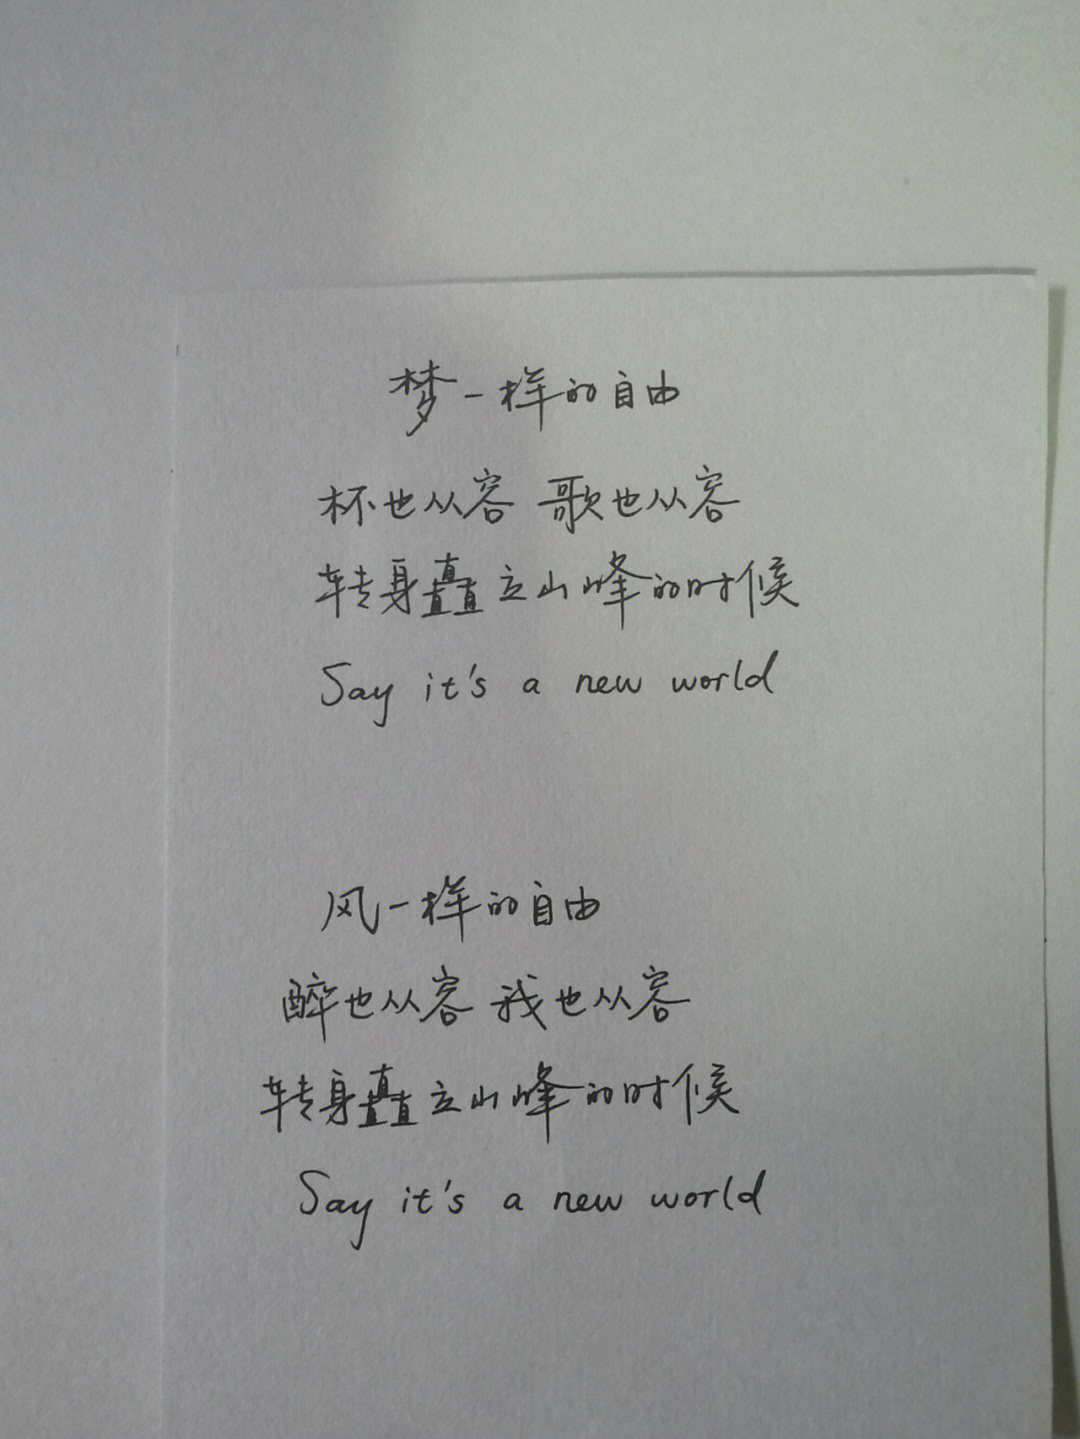 梦一样的自由
杯也从容 歌也从容
转身矗立山峰的时候
Say it's a new world
风一样的自由
醉也从容 我也从容
转身矗立山峰的时候
Say it's a new world